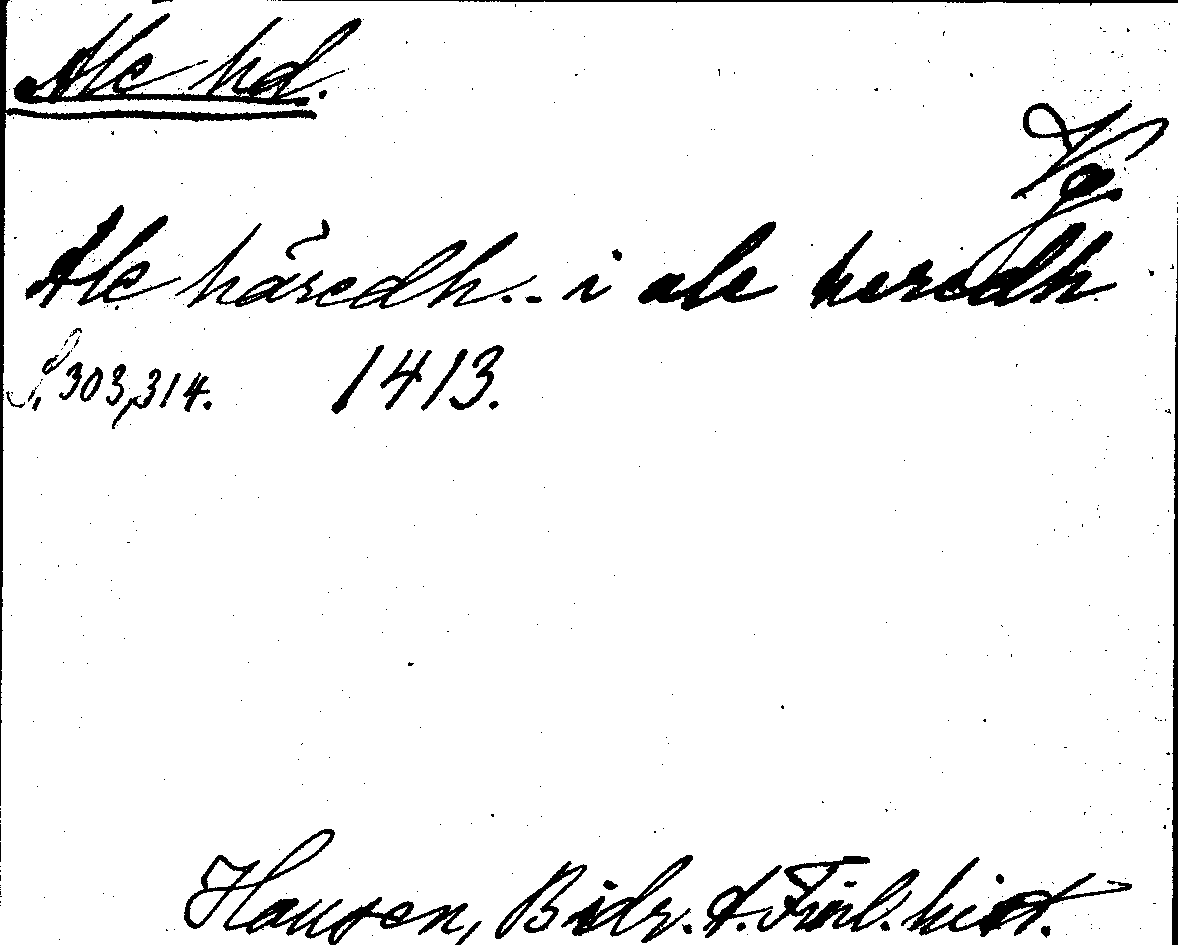 Ale hd.
Vg.
Ale häredh.. i ale heredh
S. 303, 314. 1413.
Hausen, Bidr. t. Finl. hist.